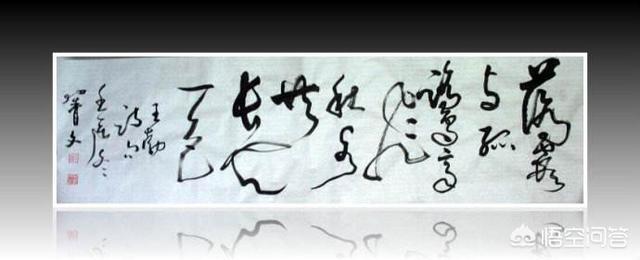 落霞
与孤
鹜齐
飞
秋水
共
长天
一色
王勃
诗句
壬辰冬
悟空问答